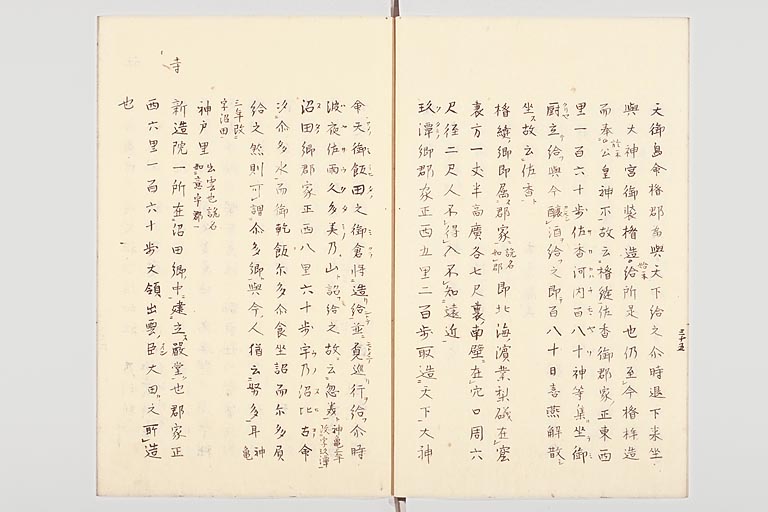 天御鳥命楯部為與天下給之尒時退下来坐
與大神宮御装楯造給所是也仍至今楯桙造
而奉公皇神不故云楯縫佐香御郡家正東西
里一百六十歩佐香河内百八十神等集坐御
厨立給與今醸酒給之即百八十日喜燕解散
坐故云佐香
楯縫郷即属郡家 説名如郡 即北海濱業梨礒在窟
裏方一丈半高廣各七尺裏南壁在穴口周六
尺径二尺人不得入不知遠近
玖潭郷郡家正西五里二百歩取造天下大神
命天御飯田之御倉将造給並覓巡行給尒時
波夜佐雨久多美乃山詔給之故云忽美 神亀三年改字玖潭
沼田郷郡家正西八里六十歩宇乃沼比古命
汐尒多水而御乾飯尓多尒食坐詔而尓多負
給之然則可謂尒多郷與今人猶云努多耳 神亀
三年改字沼田
神戸里 出雲也説名如意宇郡
寺
新造院一所在沼田郷中建立嚴堂也郡家正
西六里一百六十歩大領出雲臣大田之所造
也